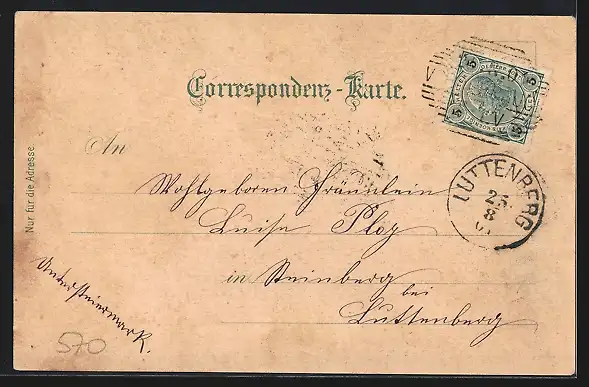 Correspondenz-Karte.
An
Wohlgeboren Fräulein
Luise Ploy
in Steinberg
bei
Luttenberg
Untersteiermark.
Nur für die Adresse.
LUTTENBERG
25.
8
570
5
5
5
5